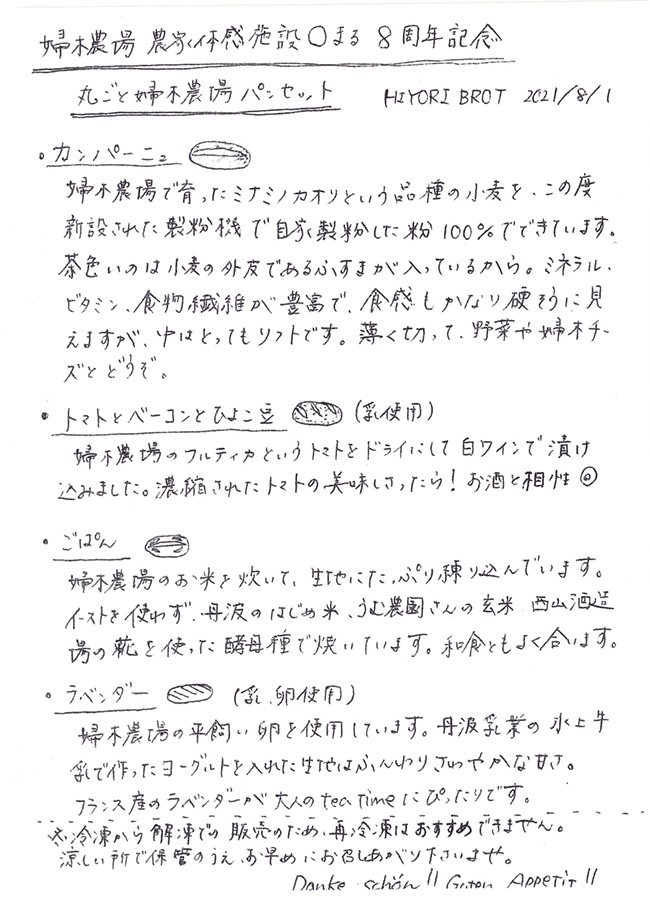 婦木農場 農家体感施設○まる 8周年記念
丸ごと婦木農場パンセット HIYORI BROT 2021/8/1
・カンパーニュ
婦木農場で育ったミナミノカオリという品種の小麦を、この度
新設された製粉機で自家製粉した粉100%でできています。
茶色いのは小麦の外皮であるふすまが入っているから。ミネラル、
ビタミン、食物繊維が豊富で、食感もかなり硬そうに見
えますが、中はとってもソフトです。薄く切って、野菜や婦木チー
ズとどうぞ。
・トマトとベーコンとひよこ豆 (乳使用)
婦木農場のフルティカというトマトをドライにして白ワインで漬け
込みました。濃縮されたトマトの美味しさったら!お酒と相性◎
・ごぱん
婦木農場のお米を炊いて、生地にたっぷり練り込んでいます。
イーストを使わず、丹波のはじめ米、うむ農園さんの玄米、西山酒造
場の糀を使った酵母種で焼いています。和食ともよく合います。
・ラベンダー (乳、卵使用)
婦木農場の平飼い卵を使用しています。丹波乳業の氷上牛
乳で作ったヨーグルトを入れた生地はふんわりさわやかな甘さ。
フランス産のラベンダーが大人のtea timeにぴったりです。
※冷凍から解凍での販売のため、再冷凍はおすすめできません。
涼しい所で保管のうえ、お早めにお召しあがり下さいませ。
Danke schön!! Guten Appetit!!